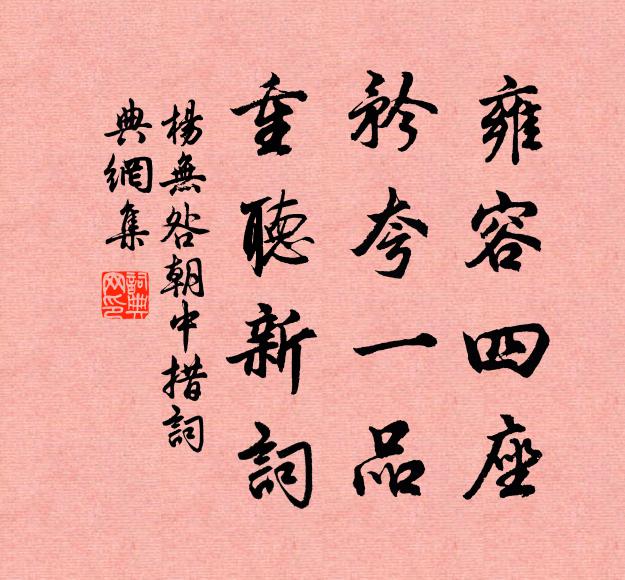 雍容四座
矜夸一品
重聽新詞
楊無咎朝中措詞
典網集
詞典網印